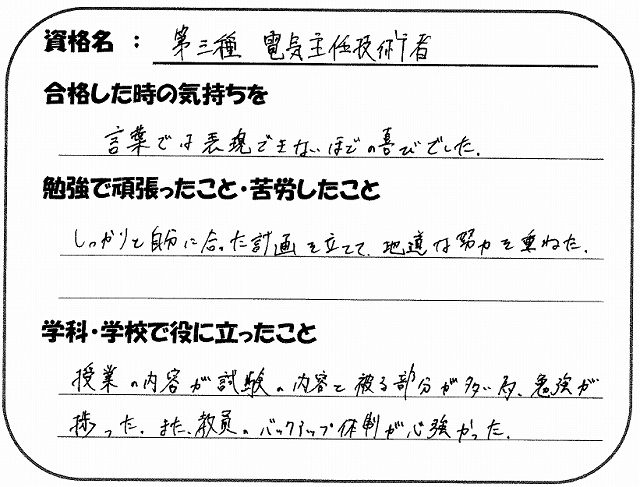 資格名 : 第三種 電気主任技術者
合格した時の気持ちを
言葉では表現できないほどの喜びでした。
勉強で頑張ったこと・苦労したこと
しっかりと自分に合った計画を立てて、地道な努力を重ねた。
学科・学校で役に立ったこと
授業の内容が試験の内容と被る部分が多い為、勉強が
捗った。また、教員のバックアップ体制が心強かった。